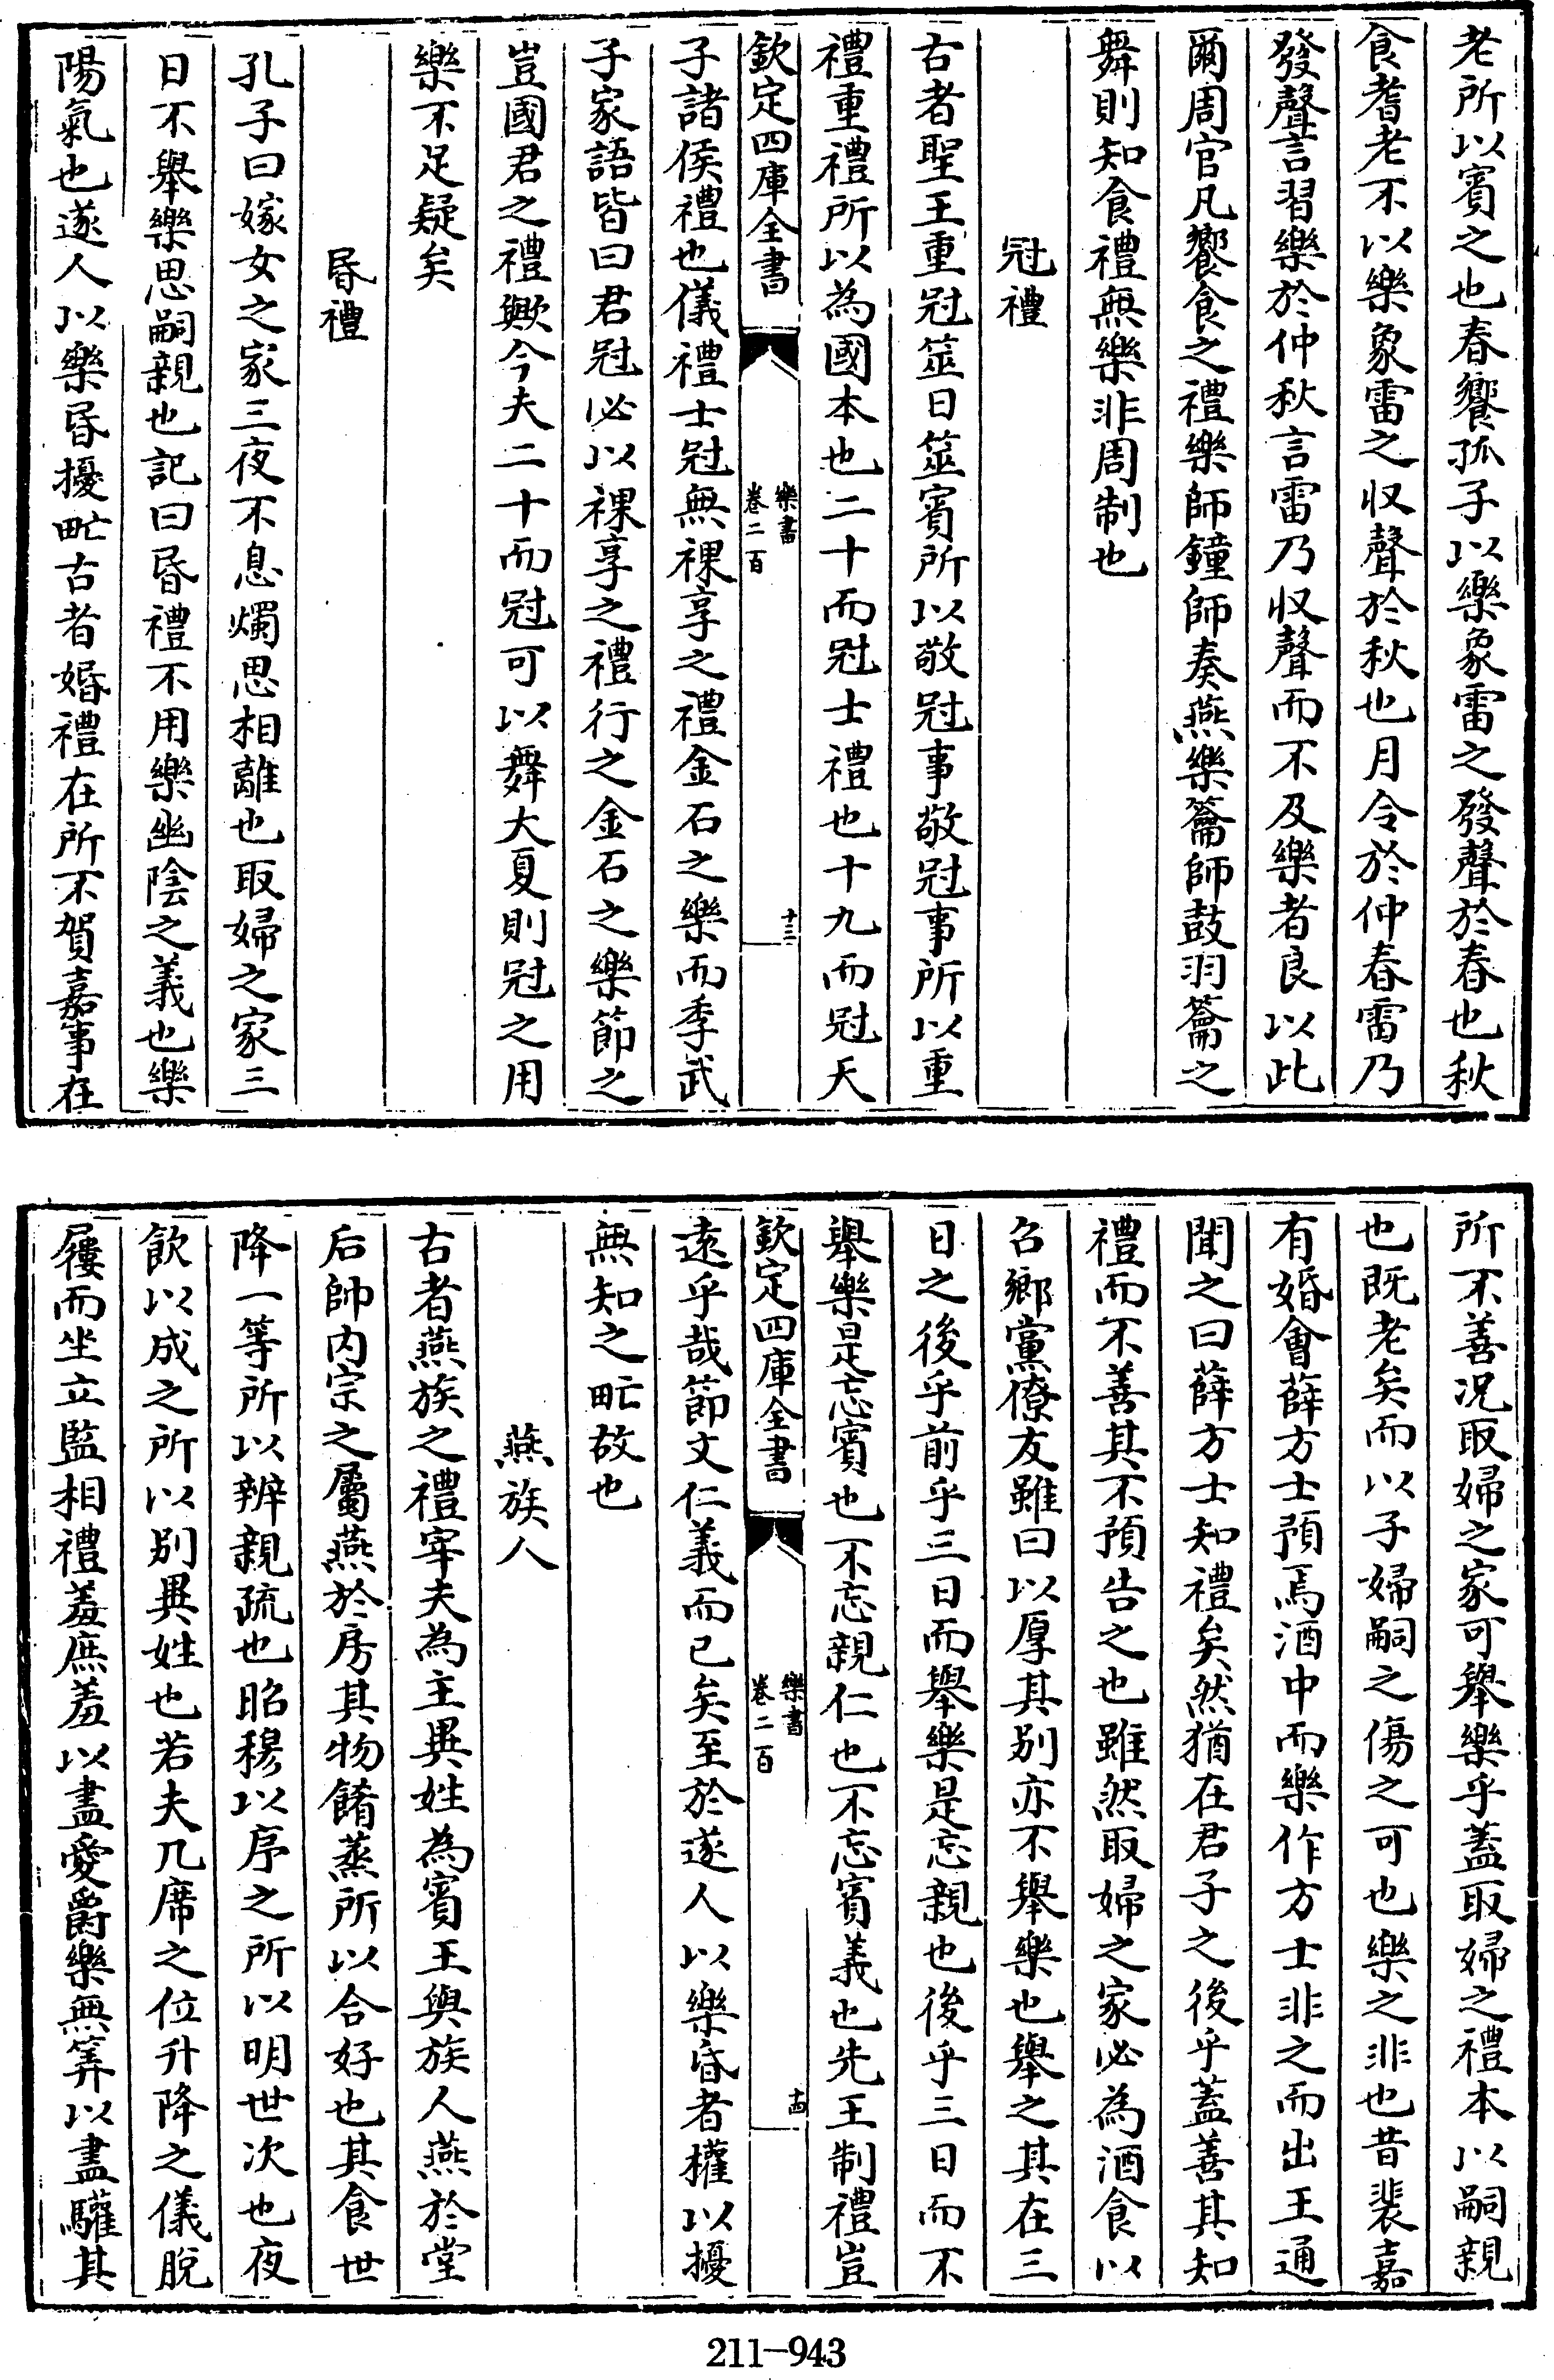 老所以賓之也春饗孤子以樂象雷之發聲於春也秋
食耆老不以樂象雷之収聲於秋也月令於仲春雷乃
發聲言習樂於仲秋言雷乃収聲而不及樂者良以此
爾周官凡饗食之禮樂師鐘師奏燕樂籥師鼓羽籥之
舞則知食禮無樂非周制也
冠禮
古者聖王重冠筮日筮賓所以敬冠事敬冠事所以重
禮重禮所以為國本也二十而冠士禮也十九而冠天
欽定四庫全書
樂書
卷二百
十三
子諸侯禮也儀禮士冠無祼享之禮金石之樂而季武
子家語皆曰君冠必以祼享之禮行之金石之樂節之
豈國君之禮歟今夫二十而冠可以舞大夏則冠之用
樂不足疑矣
昏禮
孔子曰嫁女之家三夜不息燭思相離也取婦之家三
日不舉樂思嗣親也記曰昏禮不用樂幽陰之義也樂
陽氣也遂人以樂昏擾甿古者婚禮在所不賀嘉事在
所不善况取婦之家可舉樂乎蓋取婦之禮本以嗣親
也既老矣而以子婦嗣之傷之可也樂之非也昔裴嘉
有婚會薛方士預焉酒中而樂作方士非之而出王通
聞之曰薛方士知禮矣然猶在君子之後乎蓋善其知
禮而不善其不預告之也雖然取婦之家必為酒食以
召鄉黨僚友雖曰以厚其别亦不舉樂也舉之其在三
日之後乎前乎三日而舉樂是忘親也後乎三日而不
舉樂是忘賓也不忘親仁也不忘賓義也先王制禮豈
欽定四庫全書
樂書
卷二百
十四
遠乎哉節文仁義而已矣至於遂人以樂昏者權以擾
無知之甿故也
燕族人
古者燕族之禮宰夫為主異姓為賓王與族人燕於堂
后帥内宗之屬燕於房其物餚蒸所以合好也其食世
降一等所以辨親疏也昭穆以序之所以明世次也夜
飲以成之所以别異姓也若夫几席之位升降之儀脫
屨而坐立監相禮羞庶羞以盡愛爵樂無筭以盡驩其
211-943